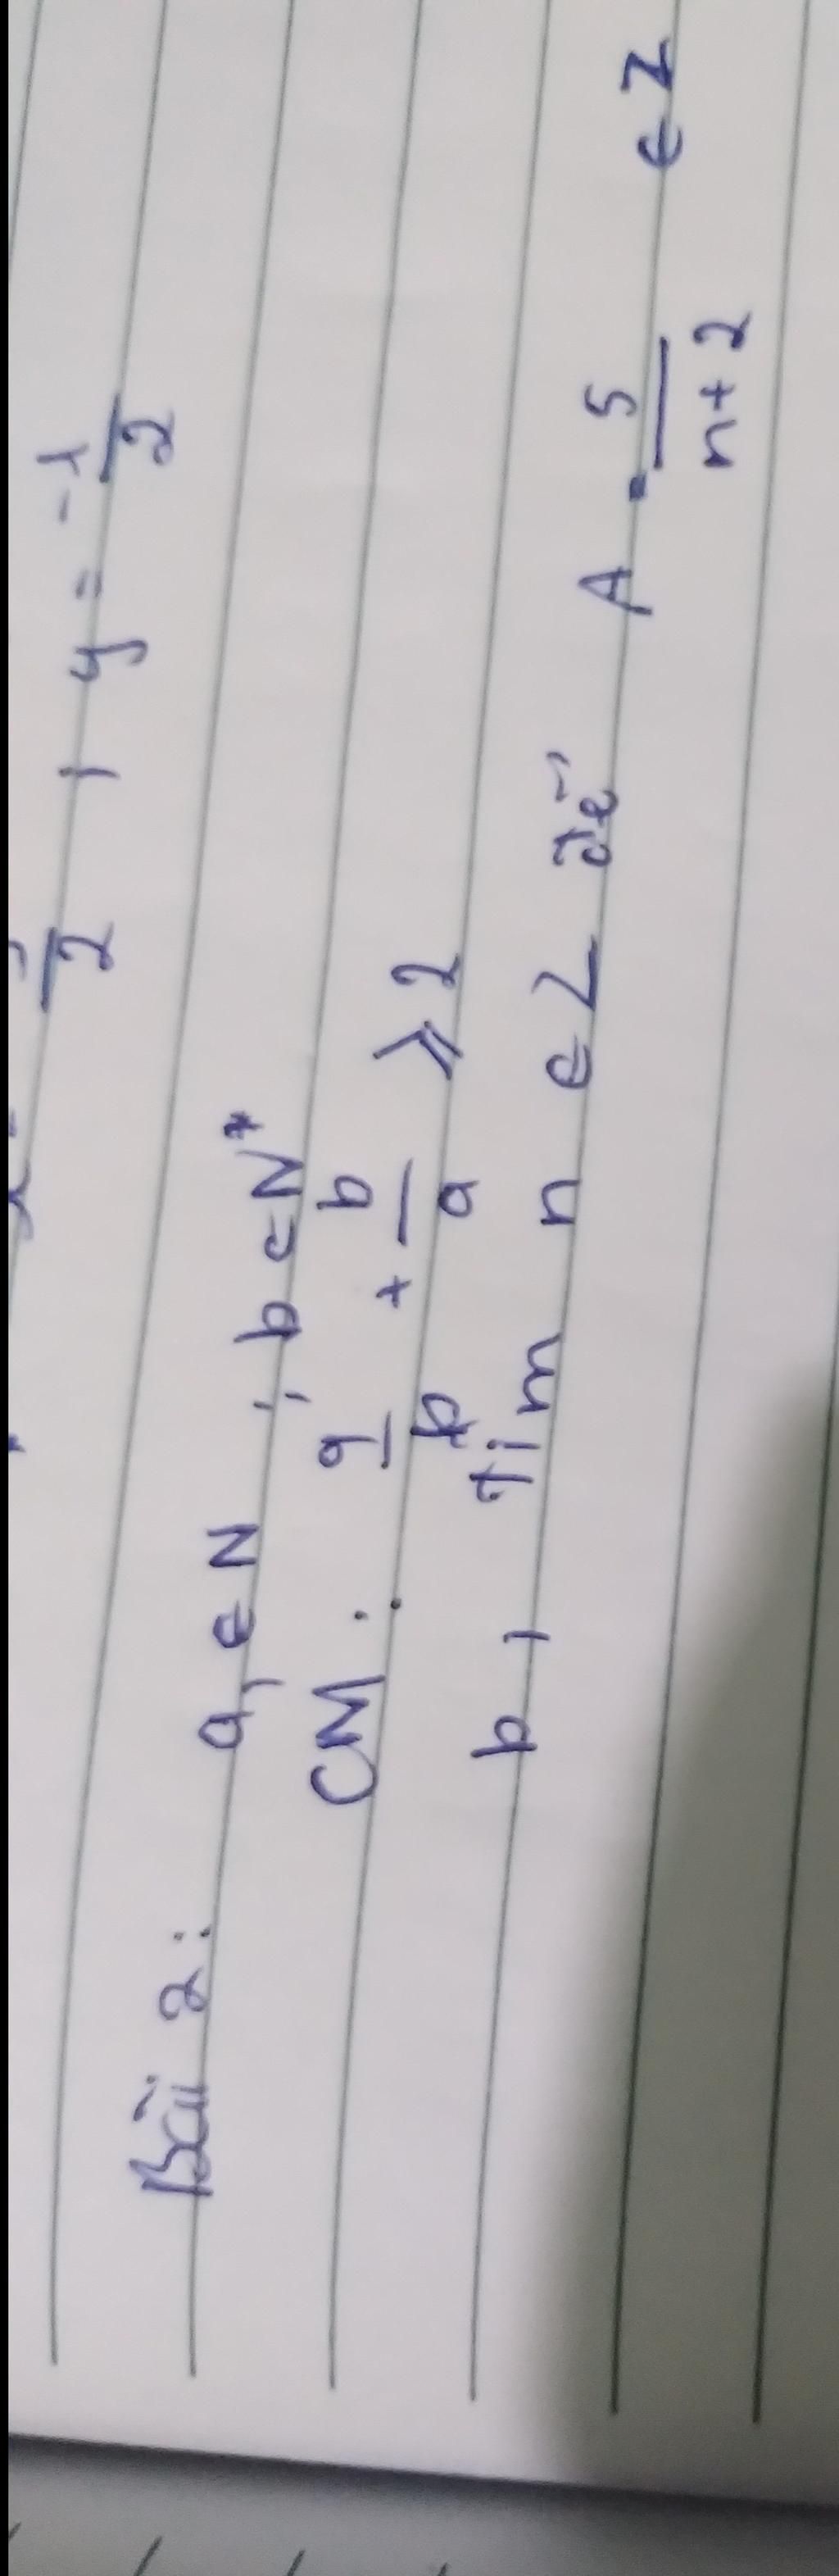 2 , y = -1/2
Bài 2: a, ∈ N ; b ∈ N*
CM : a/b + b/a ≥ 2
b, Tìm n ∈ Z để A = 5/n+2 ∈ Z